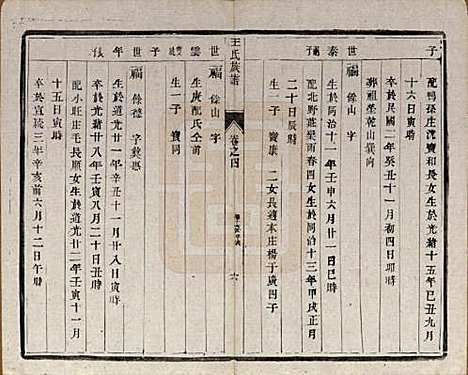 子
配鴨張庄沈寶和長女生於光緒十五年己丑九月
十六日寅時
卒於民國二年癸丑十一月初四日卯時
葬祖塋乾山巽向
世泰
世福 餘山 字
生於同治十一年壬申六月廿一日丑時
配北野莊梁雨春四女生於同治十三年甲戌正月
二十日辰時
生一子 寶康 二女長適本庄楊子廣四子
王氏族譜
卷之四
六
世雲
世福 餘山 字
生 庚 配氏仝前
生一子 寶同
子
世年
世福 餘禮 字
生於道光廿一年辛丑十一月廿八日寅時
卒於光緒廿八年壬寅八月二十日丑時
配小旺庄毛長順女生於道光二年壬寅十一月
十五日寅時
卒於宣統三年辛亥前六月十二日午時